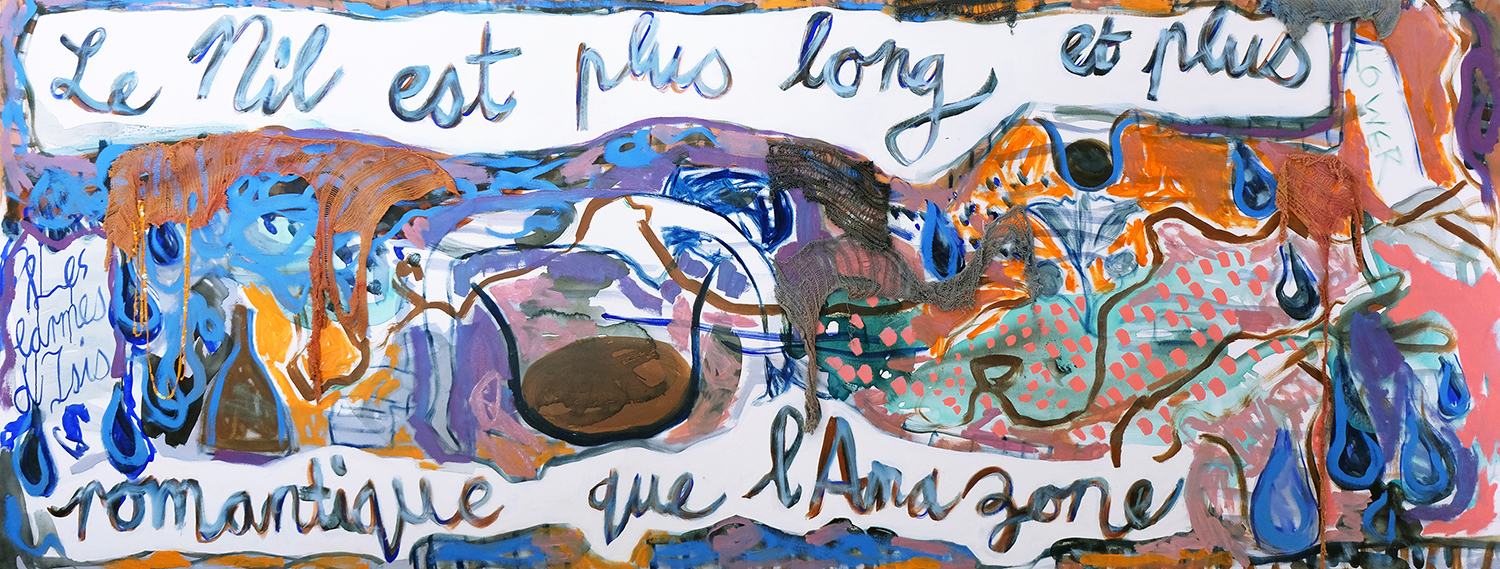 Le Nil est plus long et plus
LOWER
Les
larmes
d'Isis
romantique que l'Amazone